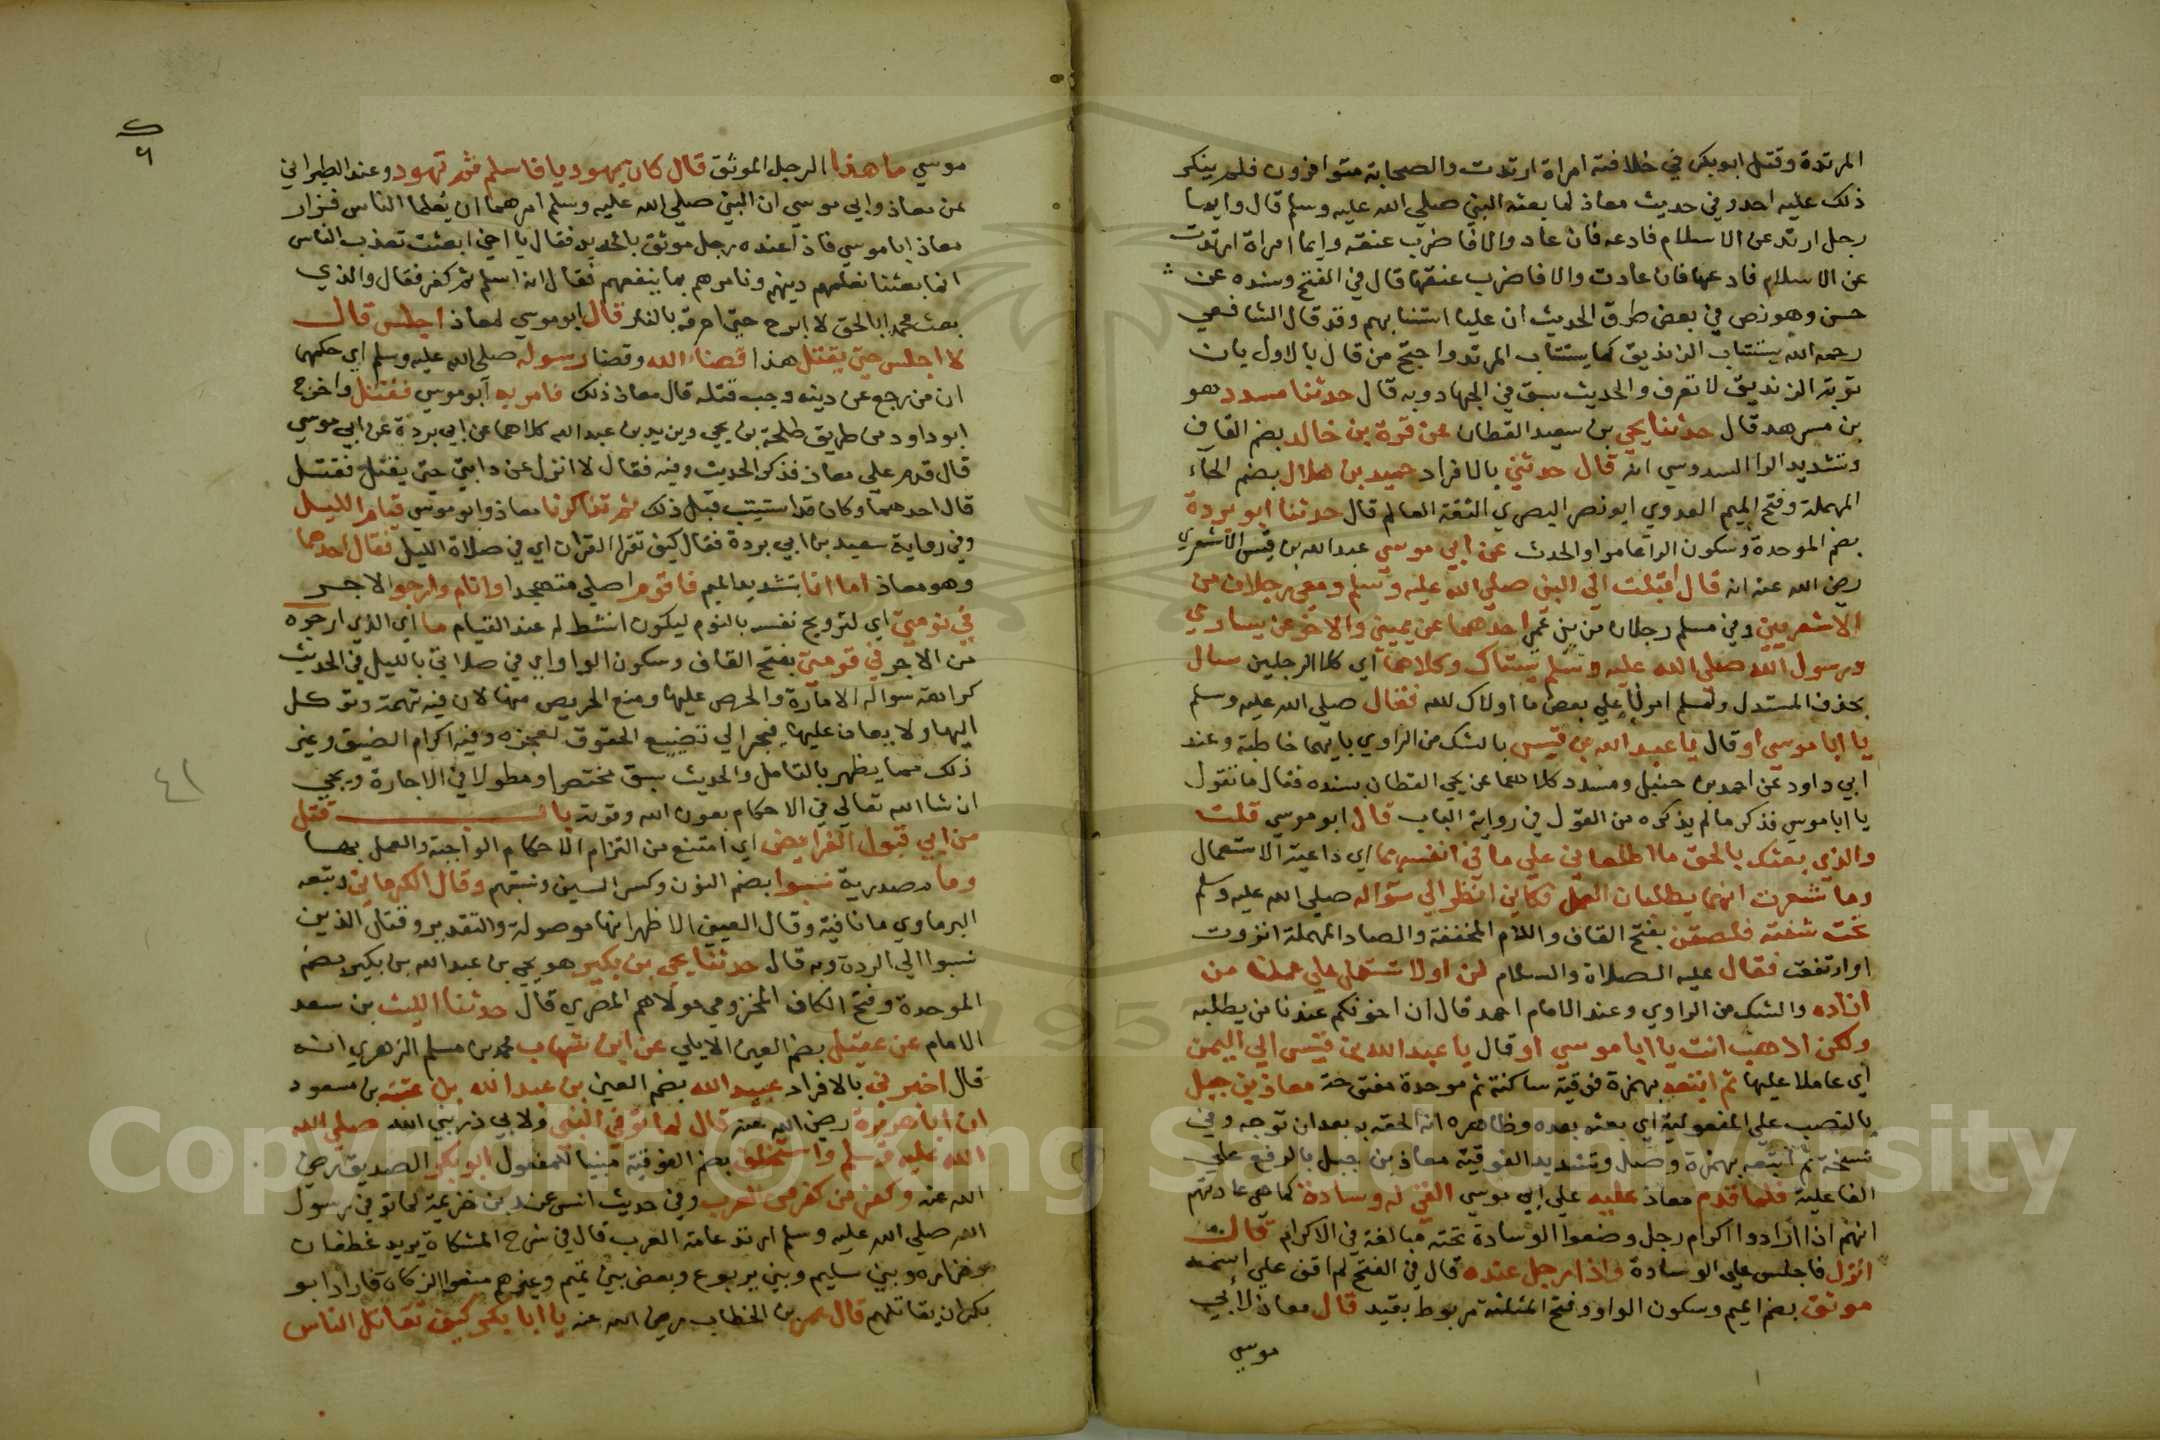 المرتدة وقتل ابو بكر في خلافته امراة ارتدت والصحابة متوافرون فلم ينكر
ذلك عليه احد وفي حديث معاذ لما بعثه النبي صلي الله عليه وسلم قال وايما
رجل ارتد عن الاسلام فادعه فان عاد والا فاضرب عنقه وايما امراة ارتدت
عن الاسلام فادعها فان عادت والا فاضرب عنقها قال في الفتح وسنده عن
حسن وهو نص في بعض طرق الحديث ان عليا استتابهم وقد قال الشافعي
رحمه الله يستتاب الزنديق كما يستتاب المرتد واحتج من قال بالاول بان
توبة الزنديق لا تعرف والحديث سبق في الجهاد وبه قال حدثنا مسدد هو
بن مسرهد قال حدثنا يحيي بن سعيد القطان عن قرة بن خالد بضم القاف
وتشديد الرا السدوسي انه قال حدثني بالافراد حميد بن هلال بضم الحاء
المهملة وفتح الميم العدوي ابو نصر البصري الثقة العالم قال حدثنا ابو بردة
بضم الموحدة وسكون الرا عامر او الحدث عن ابي موسي عبد الله بن قيس الاشعري
رضي الله عنه انه قال اقبلت الي النبي صلي الله عليه وسلم ومعي رجلان من
الاشعريين وفي مسلم رجلان من بني عمي احدهما عن يميني والاخر عن يساري
ورسول الله صلي الله عليه وسلم يستاك وكلاهما اي كلا الرجلين سال
بحذف المسئول ولمسلم امرنا علي بعض ما اولاك الله فقال صلي الله عليه وسلم
يا ابا موسي او قال يا عبد الله بن قيس بالشك من الراوي بايهما خاطبه وعند
ابي داود عن احمد بن حنبل ومسدد كلاهما عن يحي القطان بسنده فقال ما تقول
يا ابا موسي فذكر ما لم يذكره من القول في رواية الباب قال ابو موسي قلت
والذي بعثك بالحق ما اطلعاني علي ما في انفسهما اي داعية الاستعمال
وما شعرت انهما يطلبان العمل فكاني انظر الي سواكه صلي الله عليه وسلم
تحت شفته قلصقت بفتح القاف واللام المخففة والصاد المهملة انزوت
او ارتفعت فقال عليه الصلاة والسلام لن او لا نستعمل علي عملنا من
اراده والشك من الراوي وعند الامام احمد قال ان اخونكم عندنا من يطلبه
ولكن اذهب انت يا ابا موسي او قال يا عبد الله بن قيس الي اليمن
اي عاملا عليها ثم اتبعه بهمزة فوقية ساكنة ثم موحدة مفتوحة معاذ بن جبل
بالنصب علي المفعولية اي بعثه بعده وظاهره انه الحقه به بعد ان توجه وفي
نسخة ثم اتبعه بهمزة وصل وتشديد الفوقية معاذ بن جبل بالرفع علي
الفاعلية فلما قدم معاذ عليه علي ابي موسي القي له وسادة كما هي عادتهم
انهم اذا ارادوا اكرام رجل وضعوا الوسادة تحته مبالغة في الاكرام قال
انزل فاجلس علي الوسادة واذا رجل عنده قال في الفتح لم اقف علي اسمه
موثق بضم الميم وسكون الواو وفتح المثلثة مربوط بقيد قال معاذ لابي
موسي
موسي ما هذا الرجل الموثق قال كان يهوديا فاسلم ثم تهود وعند الطبراني
عن معاذ وابي موسي ان النبي صلي الله عليه وسلم امرهما ان يعلما الناس فزار
معاذ ابا موسي فاذا عنده رجل موثق بالحديد فقال يا اخي ابعثت تعذب الناس
انما بعثنا نعلمهم دينهم ونامرهم بما ينفعهم فقال انه اسلم ثم كفر فقال والذي
بعث محمدا بالحق لا ابرح حتي احرقه بالنار قال ابو موسي لمعاذ اجلس قال
لا اجلس حتي يقتل هذا قضاء الله وقضا رسوله صلي الله عليه وسلم اي حكمهما
ان من رجع عن دينه وجب قتله قال معاذ ذلك فامر به ابو موسي فقتل واخرج
ابو داود من طريق طلحة بن يحي ويزيد بن عبد الله كلاهما عن ابي بردة عن ابي موسي
قال قدم علي معاذ فذكر الحديث وفيه فقال لا انزل عن دابتي حتي يقتل فقتل
قال احدهما وكان قد استتيب قبل ذلك ثم تذاكرنا معاذ وابو موسي قيام الليل
وفي رواية سعيد بن ابي بردة فقال كيف تقرا القران اي في صلاة الليل فقال احدهما
وهو معاذ اما انا بتشديد الميم فاقوم اصلي متهجدا وانام وارجو الاجر
في نومتي اي لترويح نفسه بالنوم ليكون انشط له عند القيام ما اي الذي ارجوه
من الاجر في قومتي بفتح القاف وسكون الواو اي في صلاتي بالليل في الحديث
كراهة سوال الامارة والحرص عليها ومنع الحريص منها لان فيه تهمة وتوكل
اليها ولا يعان عليها فيجر الي تضييع الحقوق لعجزه وفيه اكرام الضيف وغير
ذلك مما يظهر بالتامل والحديث سبق مختصرا ومطولا في الاجارة ويجي
ان شا الله تعالي في الاحكام بعون الله وقوته باب قتل
من ابي قبول الفرايض اي امتنع من التزام الاحكام الواجبة والعمل بها
وما مصدرية نسبوا بضم النون وكسر السين ونسبتهم وقال الكرماني وتبعه
البرماوي ما نافية وقال العيني الاظهر انها موصولة والتقدير وقتل الذين
نسبوا الي الردة وبه قال حدثنا يحي بن بكير هو يحي بن عبد الله بن بكير بضم
الموحدة وفتح الكاف المخزومي مولاهم المصري قال حدثنا الليث بن سعد
الامام عن عقيل بضم العين الايلي عن ابن شهاب محمد بن مسلم الزهري انه
قال اخبرني بالافراد عبيد الله بضم العين بن عبد الله بن عتبة بن مسعود
ان ابا هريرة رضي الله عنه قال لما توفي النبي ولابي ذر نبي الله صلي الله
الله عليه وسلم واستخلف بضم الفوقية مبنيا للمفعول ابو بكر الصديق رضي
الله عنه وكفر من كفر من العرب وفي حديث انس عند بن خزيمة لما توفي رسول
الله صلي الله عليه وسلم ارتد عامة العرب قال في شرح المشكاة يريد غطفان
وفزاره وبني سليم وبني يربوع وبعض بني تميم وغيرهم منعوا الزكاة فاراد ابو
بكر ان يقاتلهم قال عمر بن الخطاب رضي الله عنه يا ابا بكر كيف تقاتل الناس
٤١
Copyright © King Saud University
1957